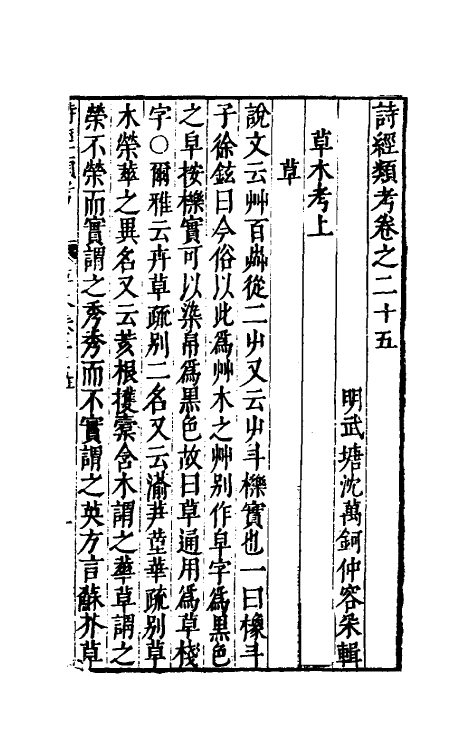 詩經類考卷之二十五
明武塘沈萬鈳仲容采輯
草木考上
草
說文云艸百芔從二屮又云草斗櫟實也一曰橡斗
子徐鉉曰今俗以此爲艸木之艸別作皁字爲黒色
之皁按櫟實可以染帛爲黒色故曰草通用爲草棧
字○爾雅云卉草疏別二名又云蕍芛葟華疏別草
木榮華之異名又云荄根攫橐含木謂之華草謂之
榮不榮而實謂之秀秀而不實謂之英方言蘇芥草